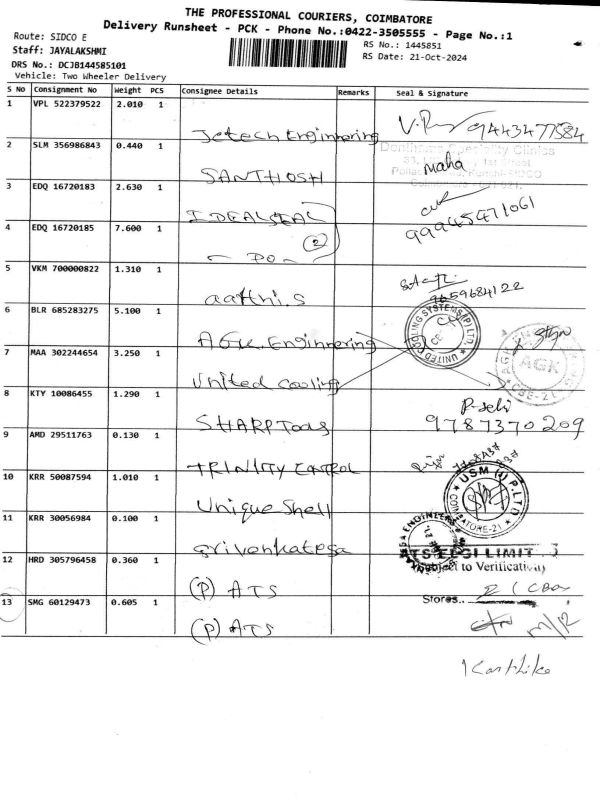 THE PROFESSIONAL COURIERS, COIMBATORE
Delivery Runsheet - PCK - Phone No.:0422-3505555 - Page No.:1
Route: SIDCO E
RS No.: 1445851
Staff: JAYALAKSHMI
RS Date: 21-Oct-2024
DRS No.: DCJB144585101
Vehicle: Two Wheeler Delivery
S No Consignment No Weight PCS Consignee Details Remarks Seal & Signature
1 VPL 522379522 2.010 1
Jetech Engineering 9443477584
2 SLM 356986843 0.440 1
Speciality Clinics
SANTHOSH maha
3 EDQ 16720183 2.630 1
IDEALSEAL 99945471061
4 EDQ 16720185 7.600 1
2
- DO -
5 VKM 700000822 1.310 1
aathi.s 9659684122
6 BLR 685283275 5.100 1
AGK. Engineering
UNITED COOLING SYSTEMS (P) LTD
7 MAA 302244654 3.250 1
AGK
CBE-21
United Cooling
8 KTY 10086455 1.290 1
P-selvi
SHARP Tools 9787370209
9 AMD 29511763 0.130 1
TRINITY CONTROL
10 KRR 50087594 1.010 1
USM (I) P.LTD
COIMBATORE-21
Unique Shell
11 KRR 30056984 0.100 1
Srivenkatesa
ATS ELGI LIMIT
12 HRD 305796458 0.360 1
Subject to Verification
(P) ATS
13 SMG 60129473 0.605 1
Stores..
(P) ATS
Karthike